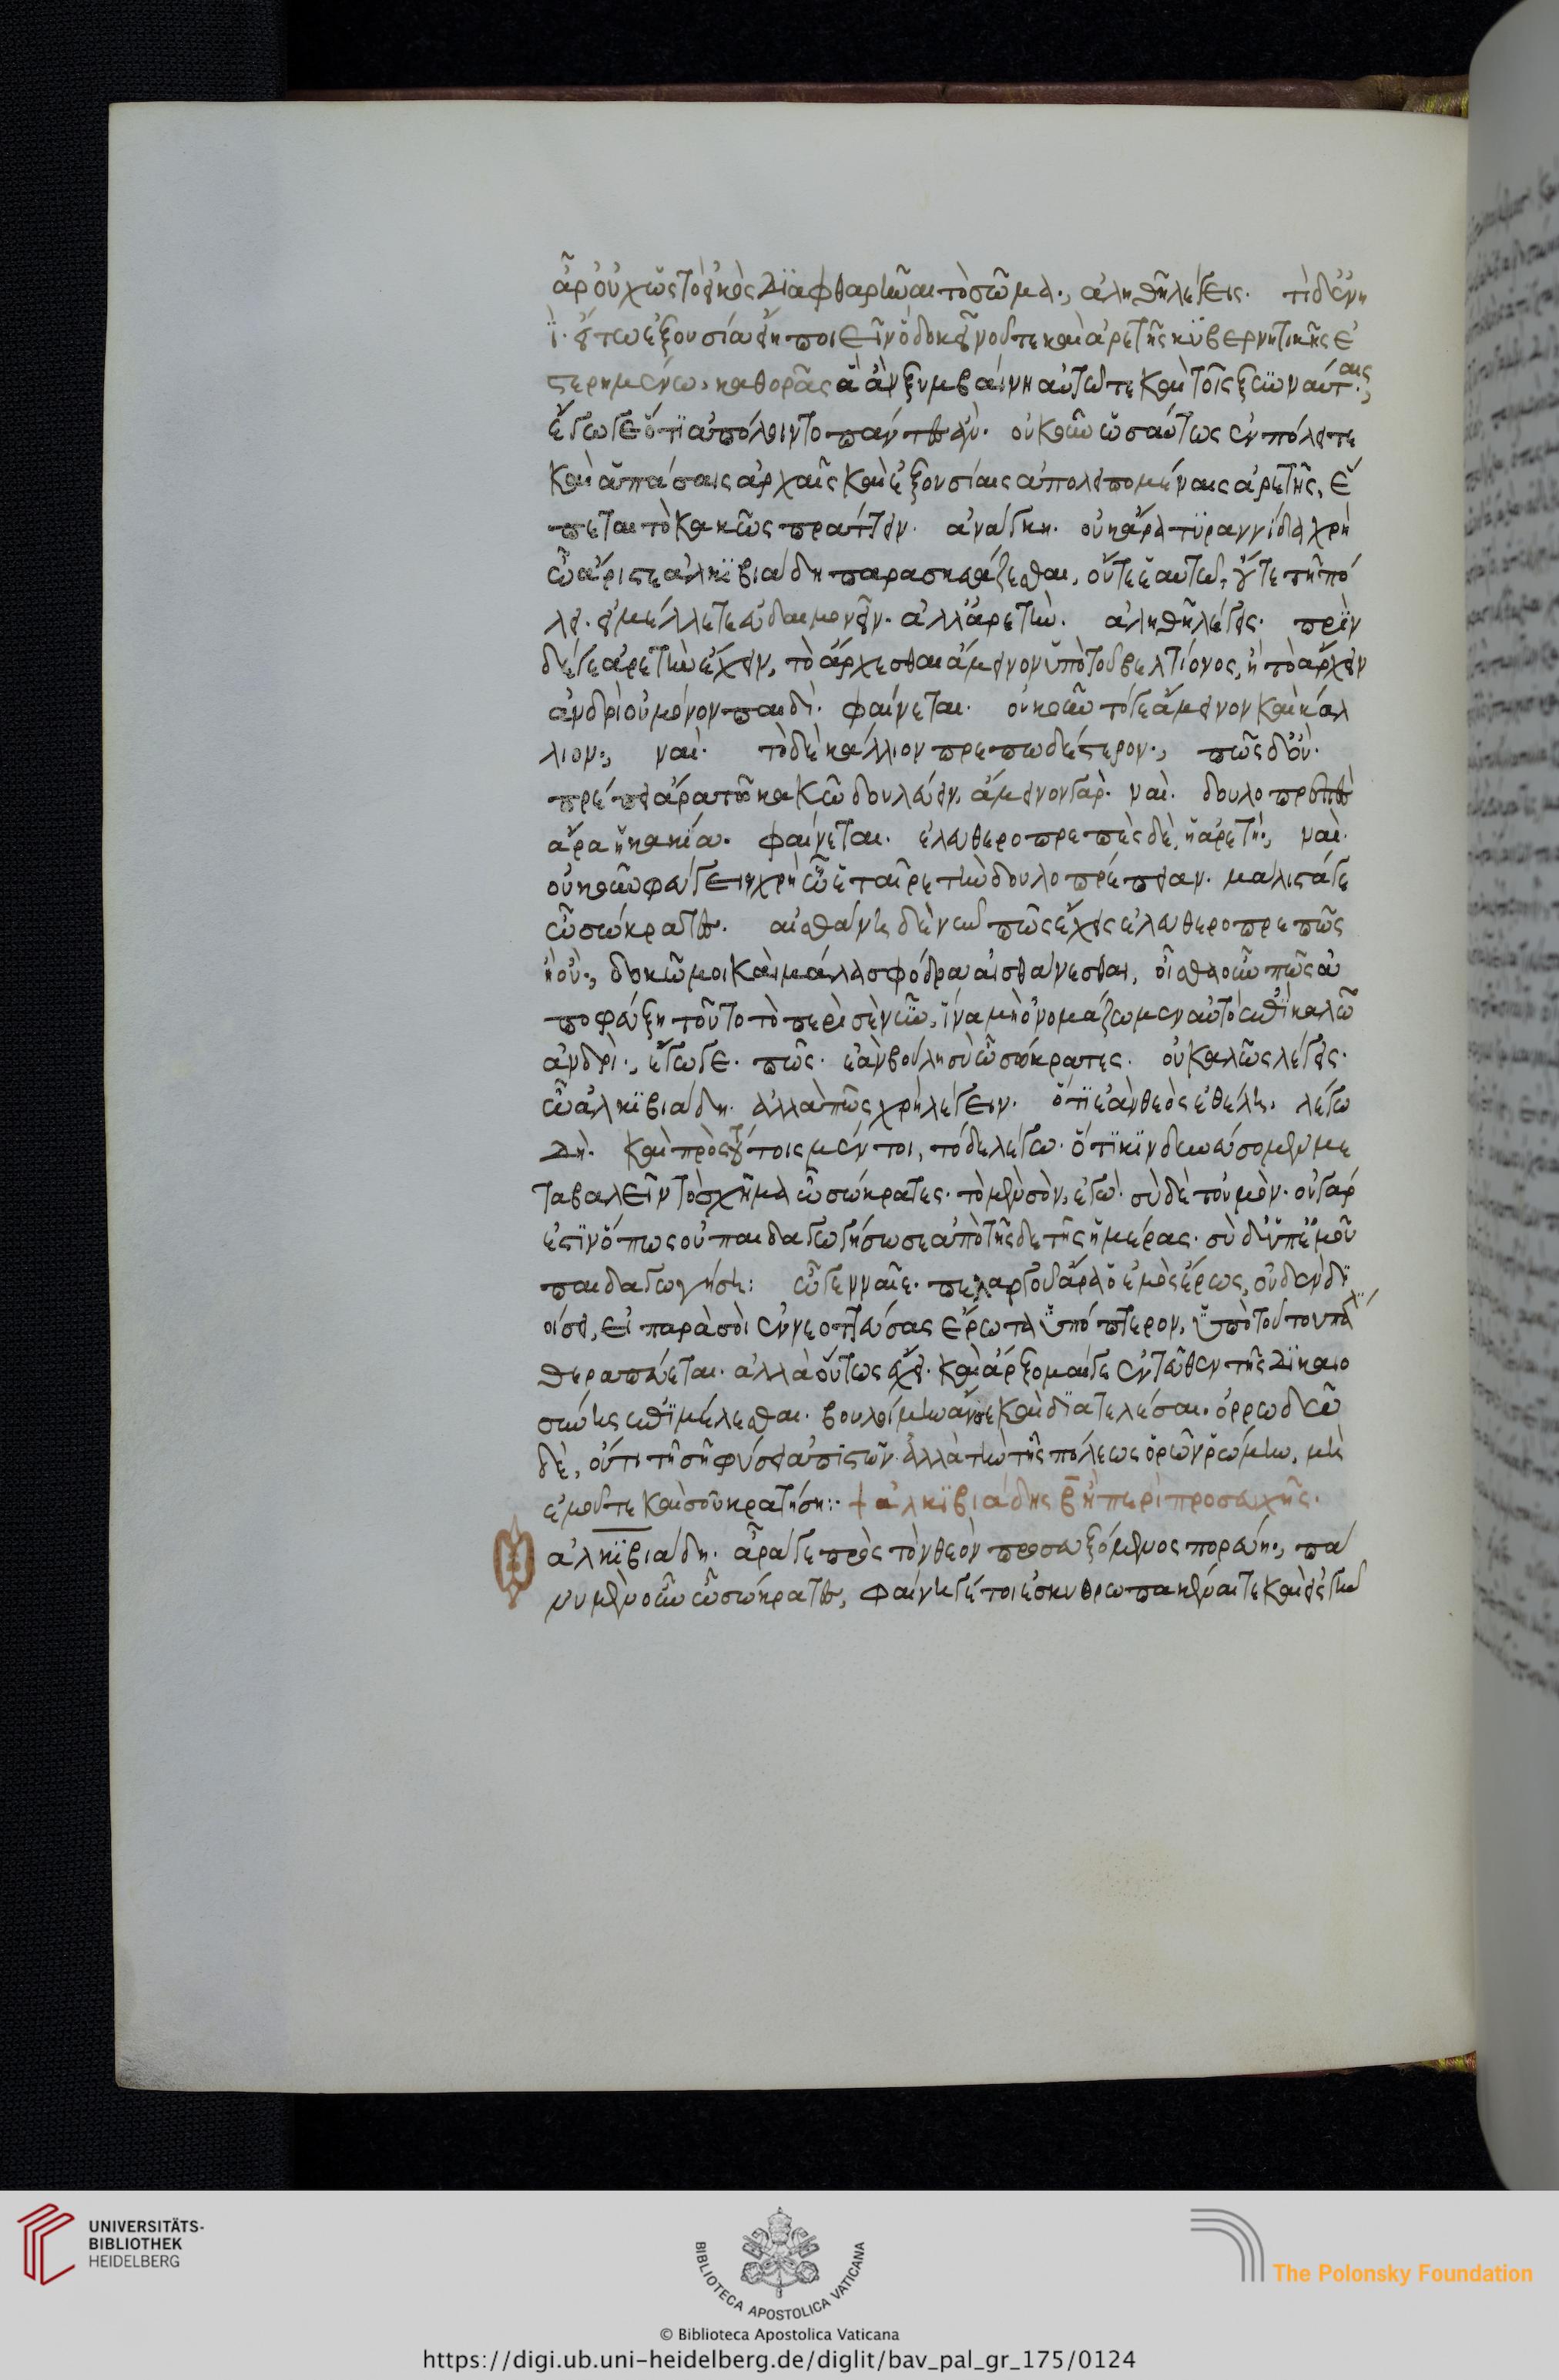 ἆρ' οὐχ ὡς τὸ εἰκὸς διαφθαρῆναι τὸ σῶμα·, ἀληθῆ λέγεις. τί δ' ἐν νη
ῒ· εἴ τω ἐξουσία εἴη ποιεῖν ὃ δοκεῖ νοῦ τε καὶ ἀρετῆς κυβερνητικῆς ἐ
στερημένω, καθορᾶς ἃ ἂν ξυμβαίνη αὐτῶ τε καὶ τοῖς ξυνναύταις·,
ἔγωγε ὅτι ἀπόλοιντο πάντες ἄν. οὐκοῦν ὡσαύτως ἐν πόλει τε
καὶ ἁπάσαις ἀρχαῖς καὶ ἐξουσίαις ἀπολειπομέναις ἀρετῆς, ἕ
πεται τὸ κακῶς πράττειν. ἀνάγκη. οὐκ ἄρα τυραννίδα χρὴ
ὦ ἄριστε ἀλκιβιάδη παρασκευάζεσθαι, οὔτε ἑαυτῶ, οὔτε τῆ πό
λει. εἰ μέλλετε εὐδαιμονεῖν. ἀλλ' ἀρετήν. ἀληθῆ λέγεις. πρὶν
δέ γε ἀρετὴν ἔχειν, τὸ ἄρχεσθαι ἄμεινον ὑπὸ τοῦ βελτίονος, ἢ τὸ ἄρχειν
ἀνδρὶ οὐ μόνον παιδί. φαίνεται. οὐκοῦν τό γε ἄμεινον καὶ κάλ
λιον·, ναί. τὸ δὲ κάλλιον πρεπωδέστερον·, πῶς δ' οὔ.
πρέπει ἄρα τῶ κακῶ δουλεύειν, ἄμεινον γάρ. ναί. δουλοπρεπὲς
ἄρα ἡ κακία. φαίνεται. ἐλευθεροπρεπὲς δὲ, ἡ ἀρετή·, ναί.
οὐκοῦν φεύγειν χρὴ ὦ ἑταῖρε τὴν δουλοπρέπειαν. μάλιστά γε
ὦ σώκρατες. αἰσθάνη δὲ νῦν πῶς ἔχεις ἐλευθεροπρεπῶς
ἢ οὔ·, δοκῶ μοι καὶ μάλα σφόδρα αἰσθάνεσθαι, οἶσθ' οὖν πῶς ἀ
ποφεύξη τοῦτο τὸ περὶ σὲ νῦν, ἵνα μὴ ὀνομάζωμεν αὐτὸ ἐπὶ καλῶ
ἀνδρί·, ἔγωγε. πῶς. ἐὰν βούλη σὺ ὦ σώκρατες. οὐ καλῶς λέγεις.
ὦ ἀλκιβιάδη. ἀλλὰ πῶς χρὴ λέγειν. ὅτι ἐὰν θεὸς ἐθέλη. λέγω
δή. καὶ πρὸς τούτοις μέντοι, τόδε λέγω. ὅτι κινδυνεύσομεν με
ταβαλεῖν τὸ σχῆμα ὦ σώκρατες. τὸ μὲν σὸν, ἐγώ. σὺ δὲ τοὐμόν. οὐ γάρ
ἐστιν ὅπως οὐ παιδαγωγήσω σε ἀπὸ τῆσδε τῆς ἡμέρας. σὺ δ' ὑπ' ἐμοῦ
παιδαγωγήση: ὦ γενναῖε. πελαργοῦ ἄρα ὁ ἐμὸς ἔρως, οὐδὲν δι
οίσει, εἰ παρὰ σοὶ ἐννεοττεύσας ἔρωτα ὑπόπτερον, ὑπὸ τούτου πάλι
θεραπεύεται. ἀλλὰ οὕτως ἔχει. καὶ ἄρξομαί γε ἐντεῦθεν τῆς δικαιο
σύνης ἐπιμέλεσθαι. βουλοίμην ἄν σε καὶ διατελέσαι. ὀρρωδῶ
δὲ, οὔτι τῆ σῆ φύσει ἀπιστῶν. ἀλλὰ τὴν τῆς πόλεως ὁρῶν ῥώμην, μὴ
ἐμοῦ τε καὶ σοῦ κρατήση:· + ἀλκιβιάδης β̄ ἢ περὶ προσευχῆς.
ἀλκιβιάδη. ἆρά γε πρὸς τὸν θεὸν προσευξόμενος πορεύη·, πά
νυ μὲν οὖν ὦ σώκρατες, φαίνη γέ τοι ἐσκυθρωπακέναι τε καὶ εἰς γῆν
UNIVERSITÄTS-
BIBLIOTHEK
HEIDELBERG
BIBLIOTECA APOSTOLICA VATICANA
The Polonsky Foundation
© Biblioteca Apostolica Vaticana
https://digi.ub.uni-heidelberg.de/diglit/bav_pal_gr_175/0124